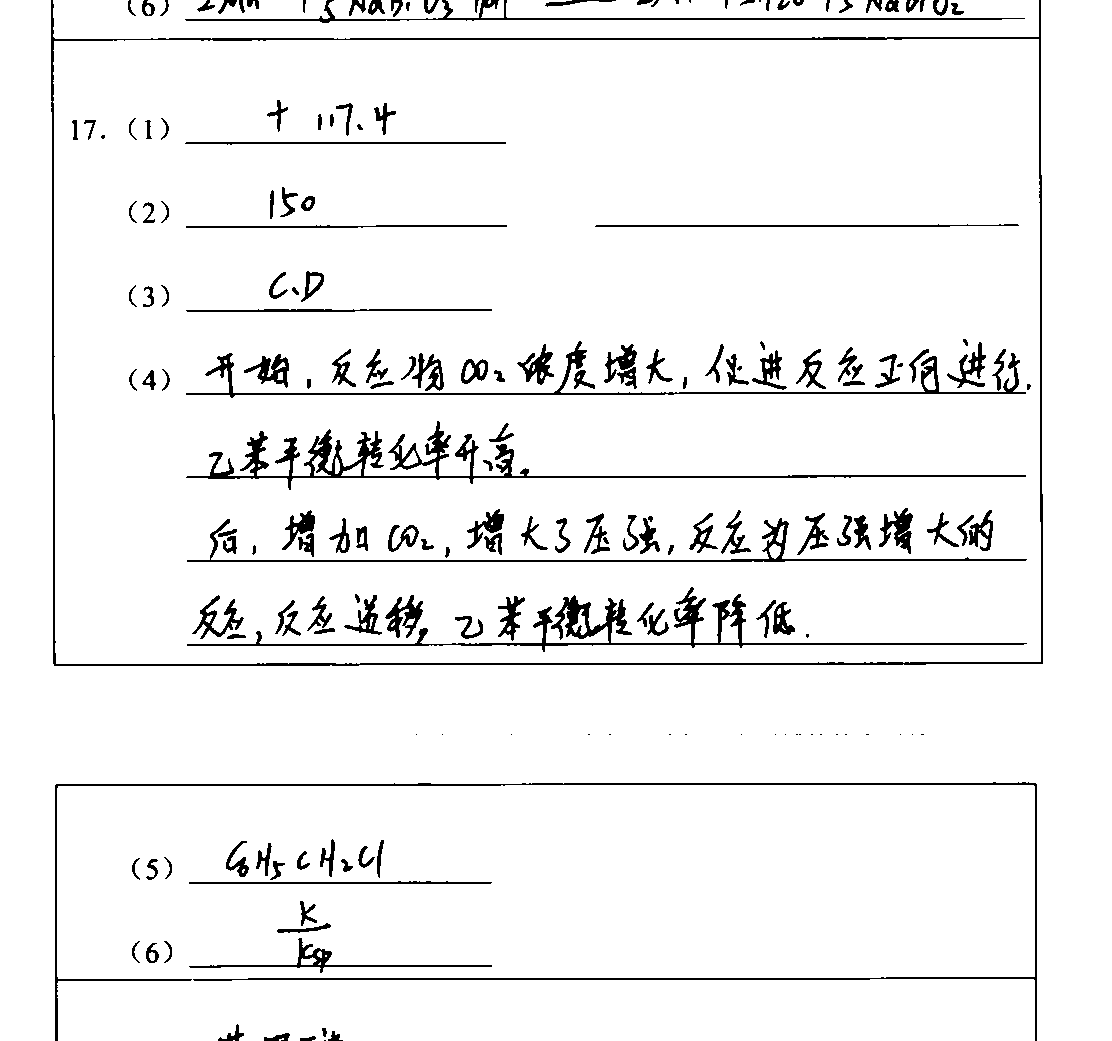 (6) 2Mn + 5NaBiO₃
17.（1） + 117.4
（2） 150
（3） C、D
（4） 开始，反应物CO₂浓度增大，促进反应正向进行.
乙苯平衡转化率升高。
后，增加CO₂，增大了压强，反应为压强增大的
反应，反应逆移，乙苯平衡转化率降低.
（5） C₆H₅CH₂Cl
（6） K/Ksp